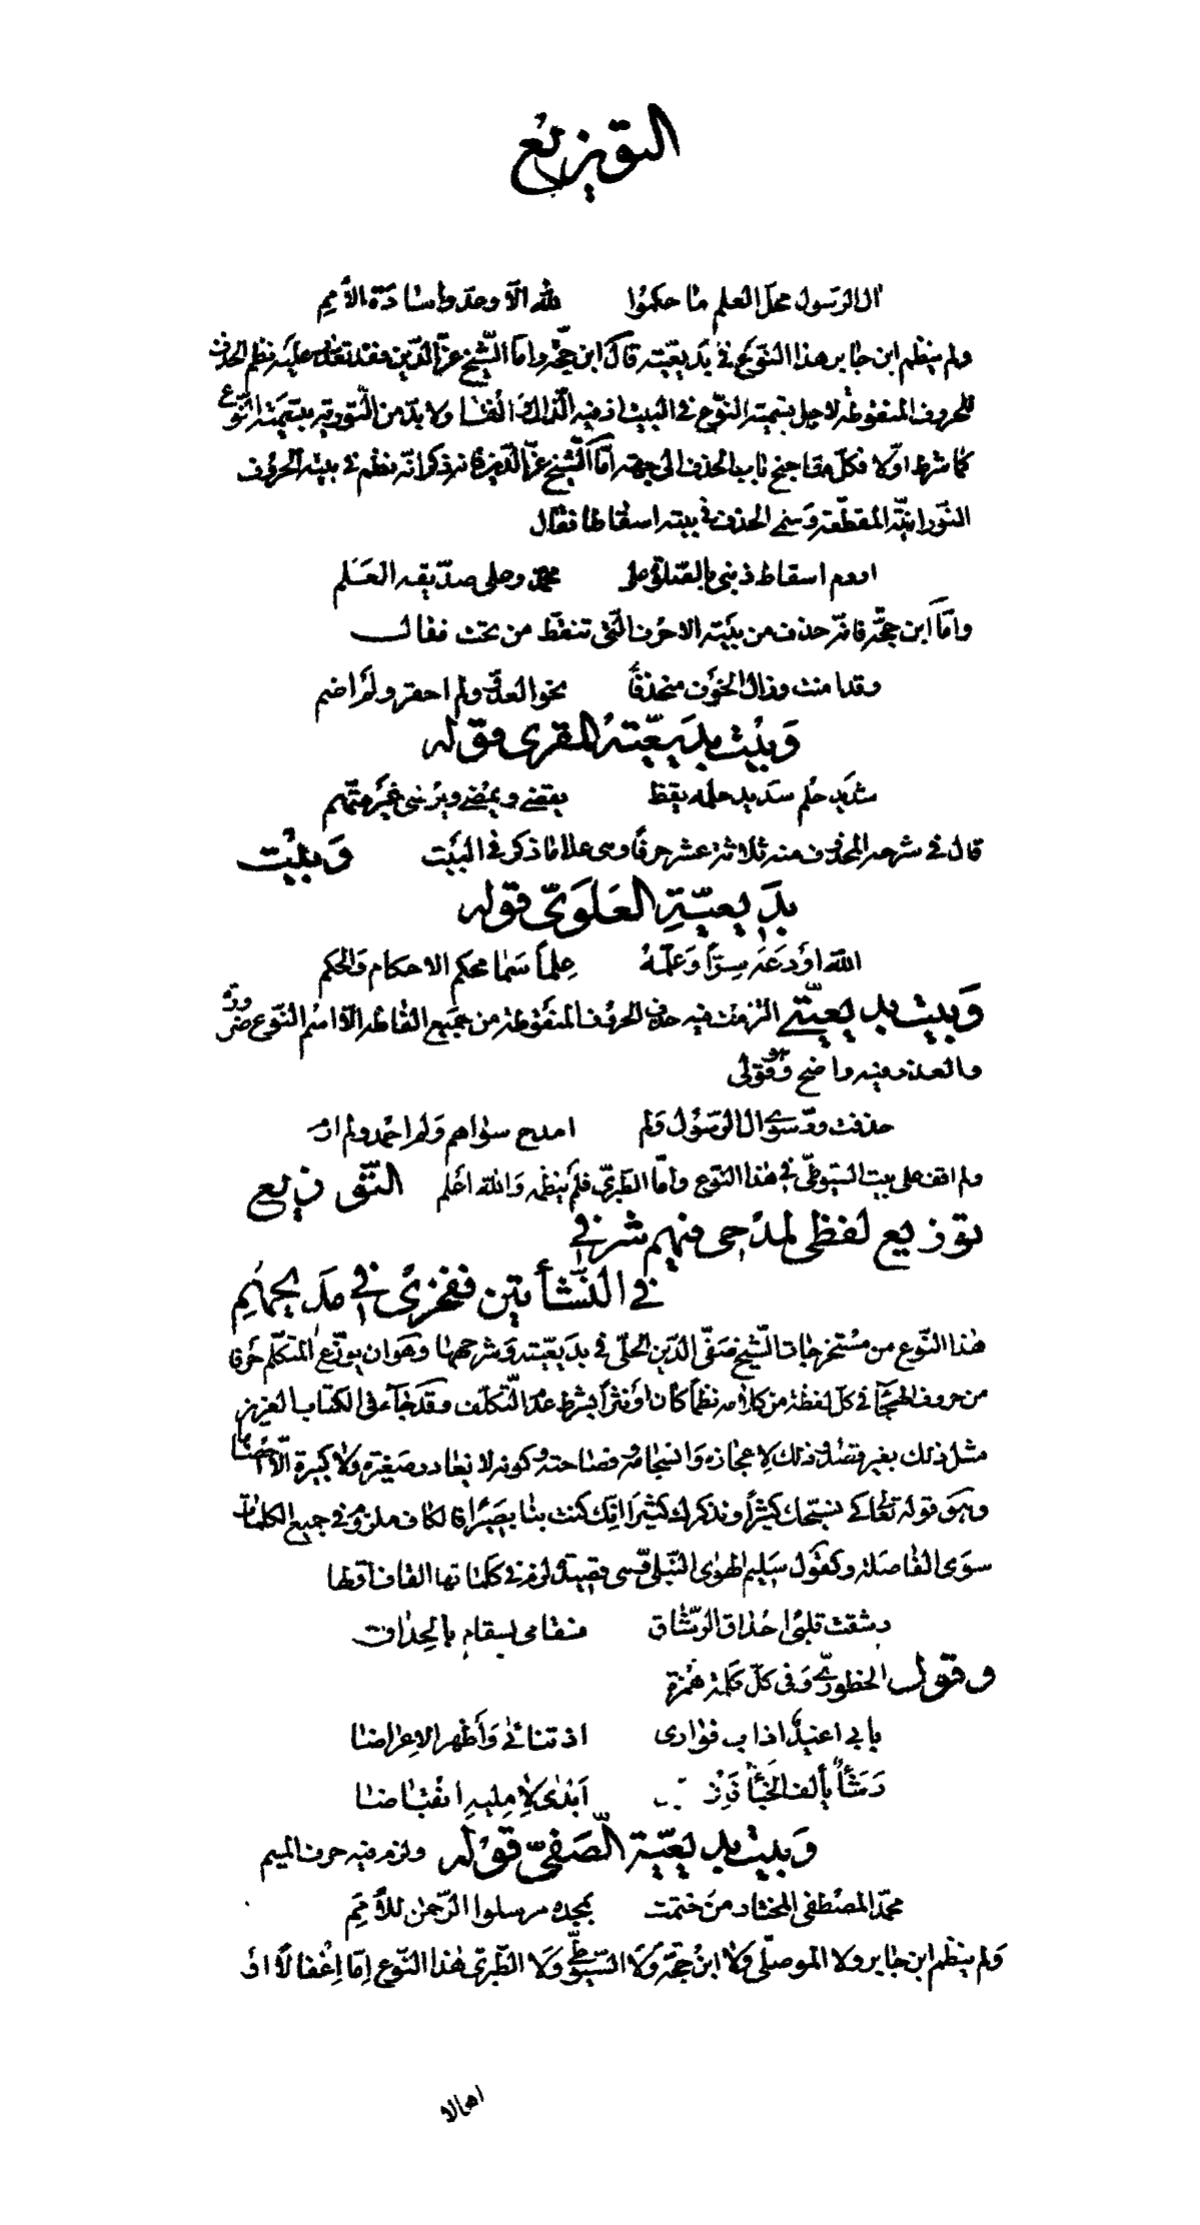 التوزيع
ال الرسول محل العلم ما حكموا لله الا وعدوا سادة الأمم
ولم ينظم ابن جابر هذا النوع في بديعيته قال ابن حجة واما الشيخ عز الدين فقد تعذر عليه نظم الحذف
للحروف المنقوطة لاجل تسمية النوع في البيت اذ فيه الذال والفا ولا بد من التورية بتسمية النوع
كما شرط اولا فكل مقا جنح ناب الحذف الى جهة اما الشيخ عز الدين فانه ذكر انه نظم في بيته الحروف
النورانية المقطعة وسمى الحذف في بيته اسقاطا فقال
اروم اسقاط ذنبي بالصلاة على محمد وعلى صديقه العلم
واما ابن حجة فانه حذف من بيته الاحرف التي تنقط من تحت فقال
وقد امنت وزال الخوف منحذفا نحو العدو ولم احقر ولم اضم
وبيت بديعية المقرى قوله
شديد حلم سديد حلمه يقظ يقضي ويمضي ويرضى غير متهم
قال في شرحه المحذوف منه ثلاثة عشر حرفا وهي علاما ذكر في البيت وبيت
بديعية العلوى قوله
الله أودعه سرا وعلمه علما سما محكم الاحكام والحكم
وبيت بديعيتي التزمت فيه حذف الحروف المنقوطة من جميع الفاظه الا اسم النوع ضرورة
والعذر فيه واضح وقولى
حذفت ود سوى ال الرسول ولم امدح سواهم ولم احمد ولم ارم
ولم اقف على بيت السيوطي في هذا النوع واما الطبري فلم ينظمه والله أعلم التوزيع
توزيع لفظي لمدحى فيهم شرفي
في النشأتين ففخزى في مديحهم
هذا النوع من مستخرجات الشيخ صفي الدين الحلى في بديعيته وشرحها وهو ان يوزع المتكلم حرفا
من حروف الهجا في كل لفظة من كلامه نظما كان او نثرا بشرط عدم التكلف وقد جاء في الكتاب العزيز
مثل ذلك بغير قصد وذلك لاعجازه وانسجامه وفصاحته وكونه لا يغادر صغيرة ولا كبيرة الا احصاها
وهو قوله تعالى كى نسبحك كثيرا ونذكرك كثيرا انك كنت بنا بصيرا فالكاف ملزوم في جميع الكلمات
سوى الفاصلة وكقول سليم الهوى النيلى من قصيدة لزم في كلماتها القاف اولها
رشقت قلبي احداق الرشاق فسقامي بسقام بالحداق
وقول الخطورى وفى كل كلمة همزة
بابي اغيد اذاب فؤادى اذ تناءى وأظهر الاعراضا
رشأ يألف الجفا أبدى لآمليه انقباضا
وبيت بديعية الصفي قوله ولزم فيه حرف الميم
محمد المصطفى المختار من ختمت بمجده مرسلوا الرحمن للأمم
ولم ينظم ابن جابر ولا الموصلى ولا ابن حجة ولا السيوطي ولا الطبرى هذا النوع اما اغفالا او
اهمالا